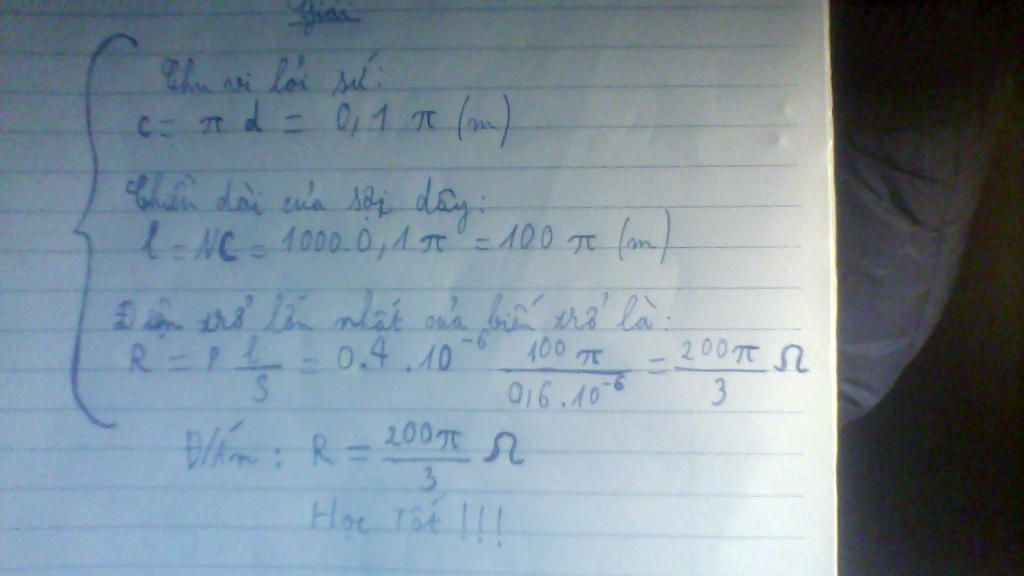 Giải
Chu vi lõi sứ:
c = π d = 0,1 π (m)
Chiều dài của sợi dây:
l = NC = 1000.0,1 π = 100 π (m)
Điện trở lớn nhất của biến trở là:
R = ρ l/S = 0.4 . 10⁻⁶ 100 π/0,6.10⁻⁶ = 200π/3 Ω
Đ/Án : R = 200π/3 Ω
Học Tốt !!!